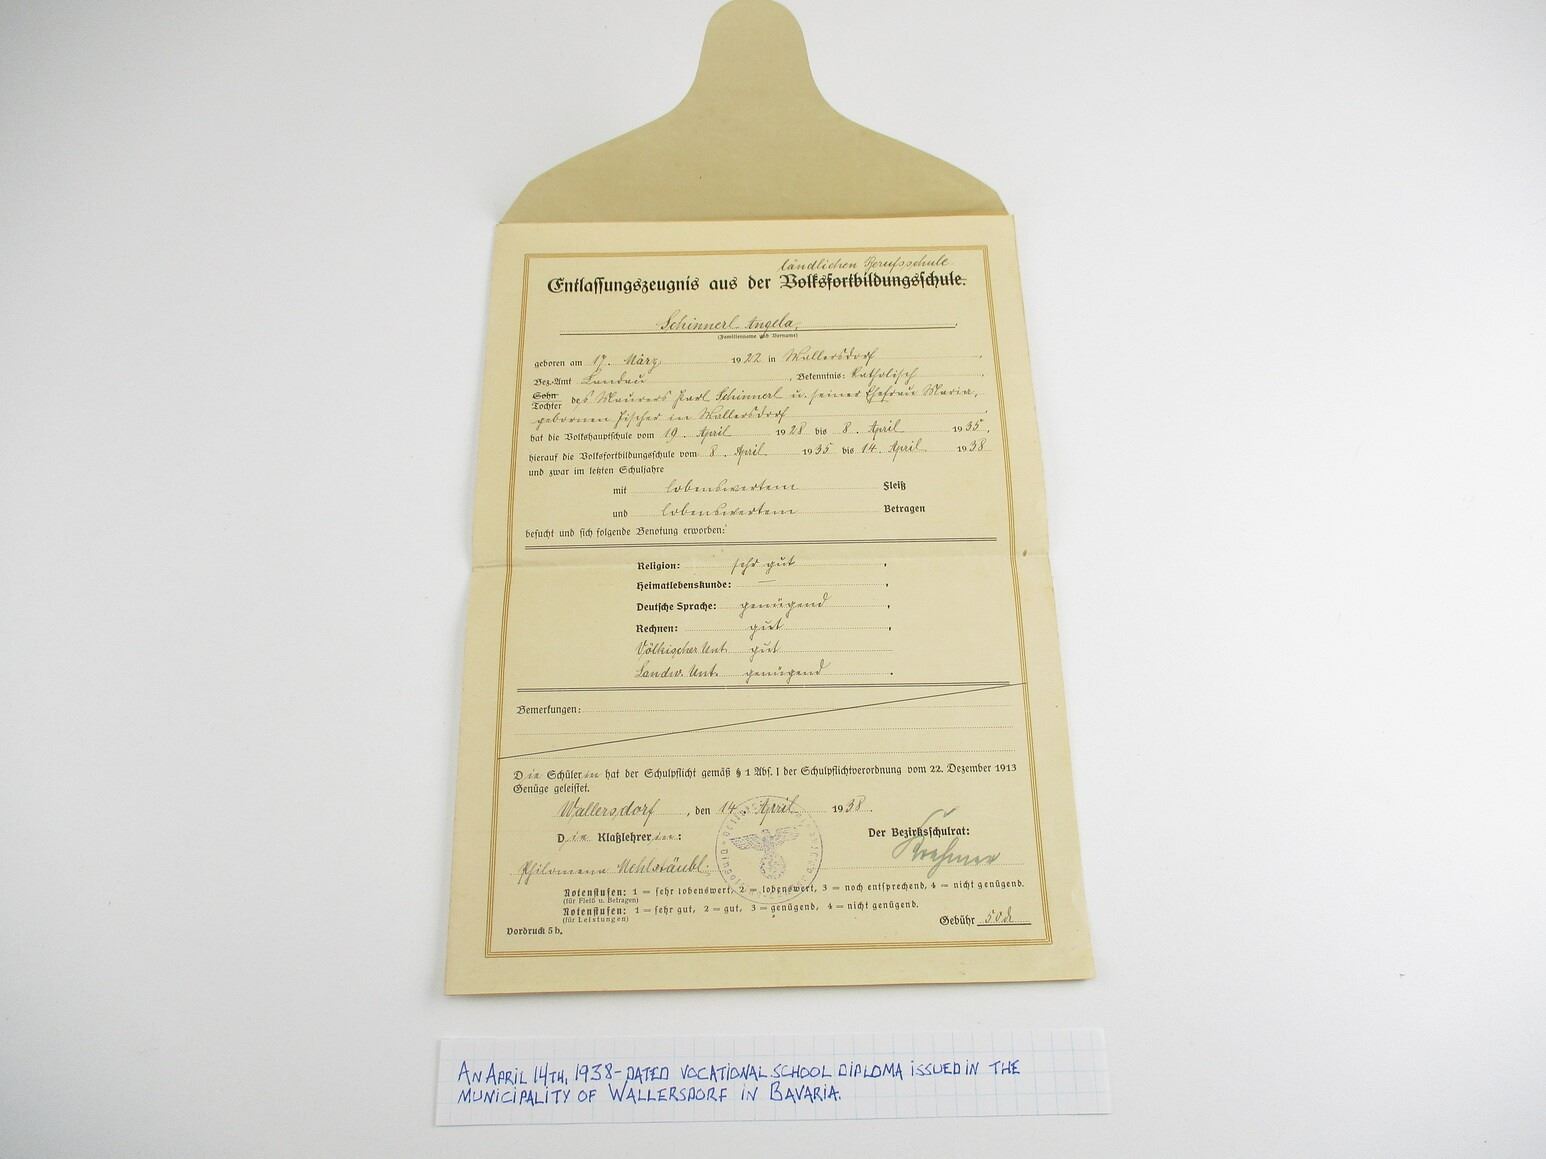 ländlichen Berufsschule
Entlassungszeugnis aus der Volksfortbildungsschule.
Schinnerl Angela,
(Familienname und Vorname)
geboren am 17. März 1922 in Wallersdorf,
Bez.-Amt Landau, Bekenntnis: katholisch,
Sohn
Tochter des Maurers Karl Schinnerl u. seiner Ehefrau Maria,
gebornen Fischer in Wallersdorf,
hat die Volkshauptschule vom 19. April 1928 bis 8. April 1935,
hierauf die Volksfortbildungsschule vom 8. April 1935 bis 14. April 1938
und zwar im letzten Schuljahre
mit lobenswertem Fleiß
und lobenswertem Betragen
besucht und sich folgende Benotung erworben:
Religion: sehr gut.
Heimatlebenskunde: —.
Deutsche Sprache: genügend.
Rechnen: gut.
Völkischer Unt. gut
Landw. Unt. genügend.
Bemerkungen:
Die Schülerin hat der Schulpflicht gemäß § 1 Abs. I der Schulpflichtverordnung vom 22. Dezember 1913
Genüge geleistet.
Wallersdorf, den 14. April 1938.
Die Klaßlehrerin: Der Bezirksschulrat:
Philomena
Notenstufen: 1 = sehr lobenswert, 2 = lobenswert, 3 = noch entsprechend, 4 = nicht genügend.
(für Fleiß u. Betragen)
Notenstufen: 1 = sehr gut, 2 = gut, 3 = genügend, 4 = nicht genügend.
(für Leistungen)
Gebühr 50 d
Vordruck 5 b.
AN APRIL 14TH, 1938-DATED VOCATIONAL SCHOOL DIPLOMA ISSUED IN THE
MUNICIPALITY OF WALLERSDORF IN BAVARIA.